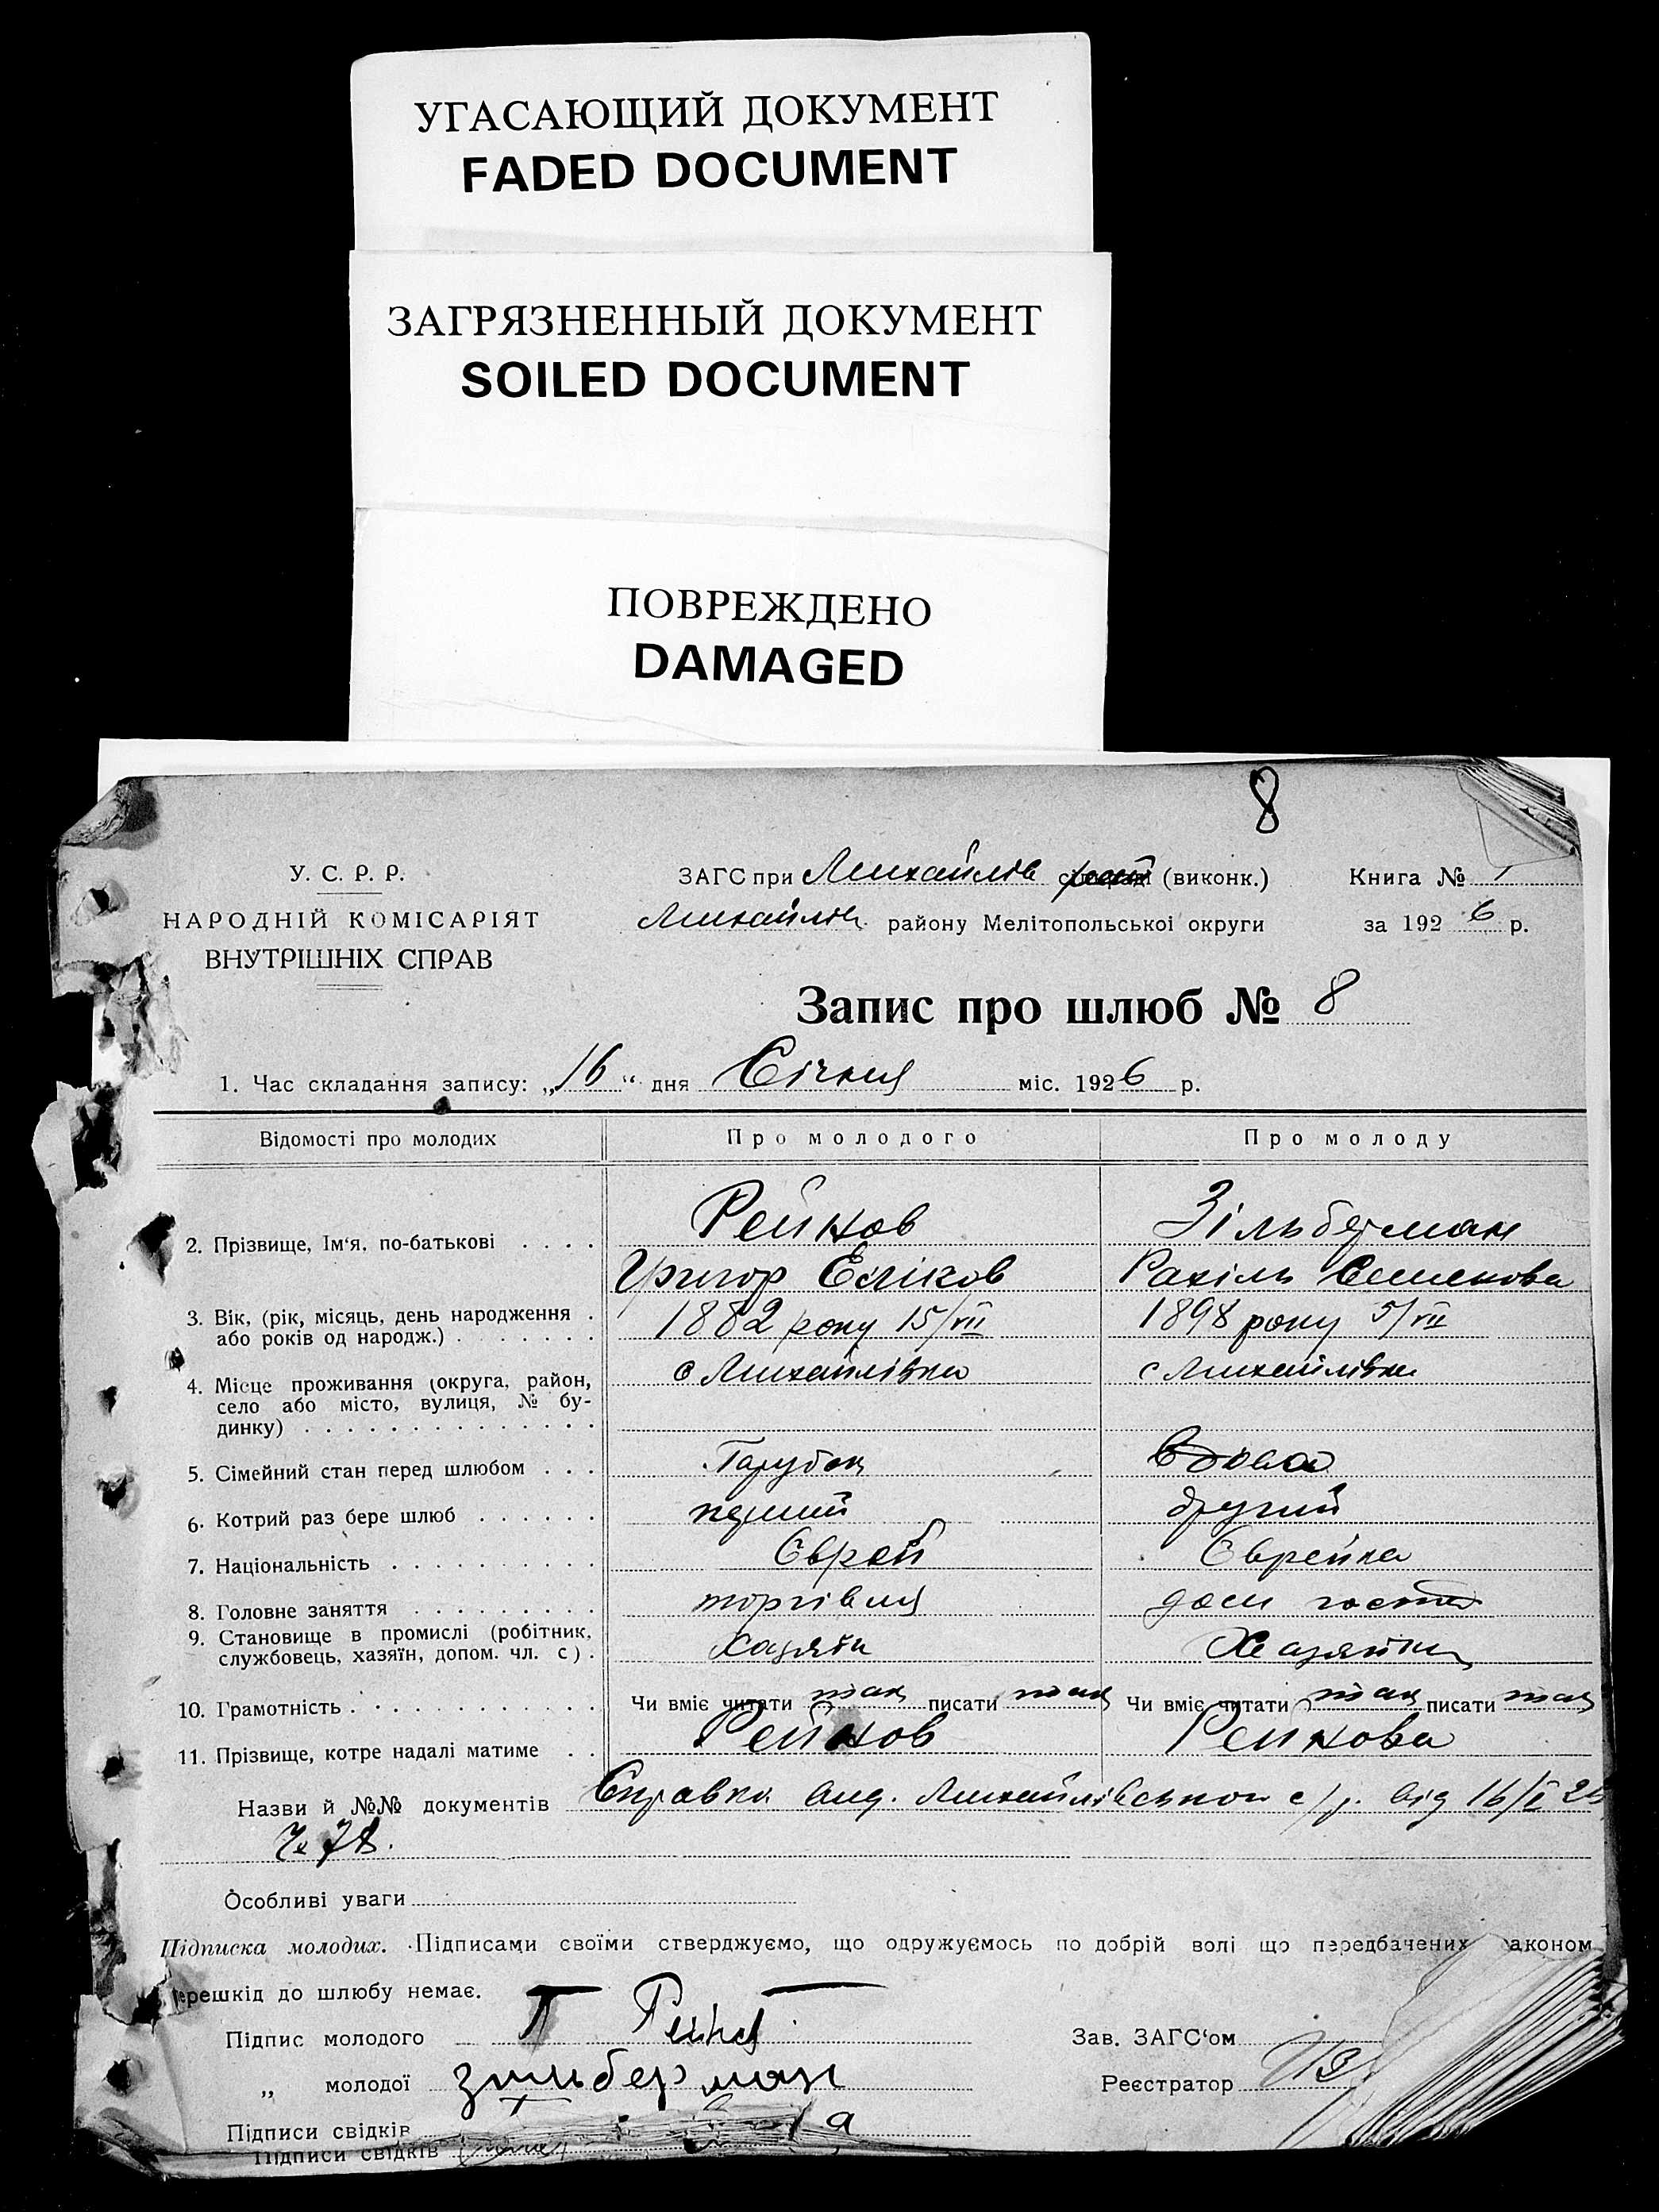 УГАСАЮЩИЙ ДОКУМЕНТ
FADED DOCUMENT
ЗАГРЯЗНЕННЫЙ ДОКУМЕНТ
SOILED DOCUMENT
ПОВРЕЖДЕНО
DAMAGED
8
У. С. Р. Р.
НАРОДНІЙ КОМІСАРІЯТ
ВНУТРІШНІХ СПРАВ
ЗАГС при Михайлів (виконк.)
Михайлів. району Мелітопольської округи
Книга № 1
за 1926 р.
Запис про шлюб № 8
1. Час складання запису: „16“ дня Січня міс. 1926 р.
Відомості про молодих Про молодого Про молоду
2. Прізвище, Ім'я, по-батькові . . . . Рейнов Зільберман
Григор Еліков Рахіль Семенова
3. Вік, (рік, місяць, день народження . 1882 року 15/VII 1898 року 5/VII
або років од народж.) . . . . . . .
4. Місце проживання (округа, район, с Михайлівка с Михайлівка
село або місто, вулиця, № бу-
динку) . . . . . . . . . . . . . .
5. Сімейний стан перед шлюбом . . . Парубок Вдова
6. Котрий раз бере шлюб . . . . . . перший другий
7. Національність . . . . . . . . . . Єврей Єврейка
8. Головне заняття . . . . . . . . . торгівля дом госп
9. Становище в промислі (робітник, Хазяїн Хазяйка
службовець, хазяїн, допом. чл. с) .
10. Грамотність . . . . . . . . . . . Чи вміє читати так писати так Чи вміє читати так писати так
11. Прізвище, котре надалі матиме . . Рейнов Рейнова
Назви й №№ документів Справка вид. Михайлівською с/р. від 16/I 26
Ч 78.
Особливі уваги
Підписка молодих. Підписами своїми стверджуємо, що одружуємось по добрій волі що передбачених законом
перешкід до шлюбу немає.
Підпис молодого Рейнов
„ молодої Зильберман
Зав. ЗАГС'ом
Реєстратор
Підписи свідків
Підписи свідків